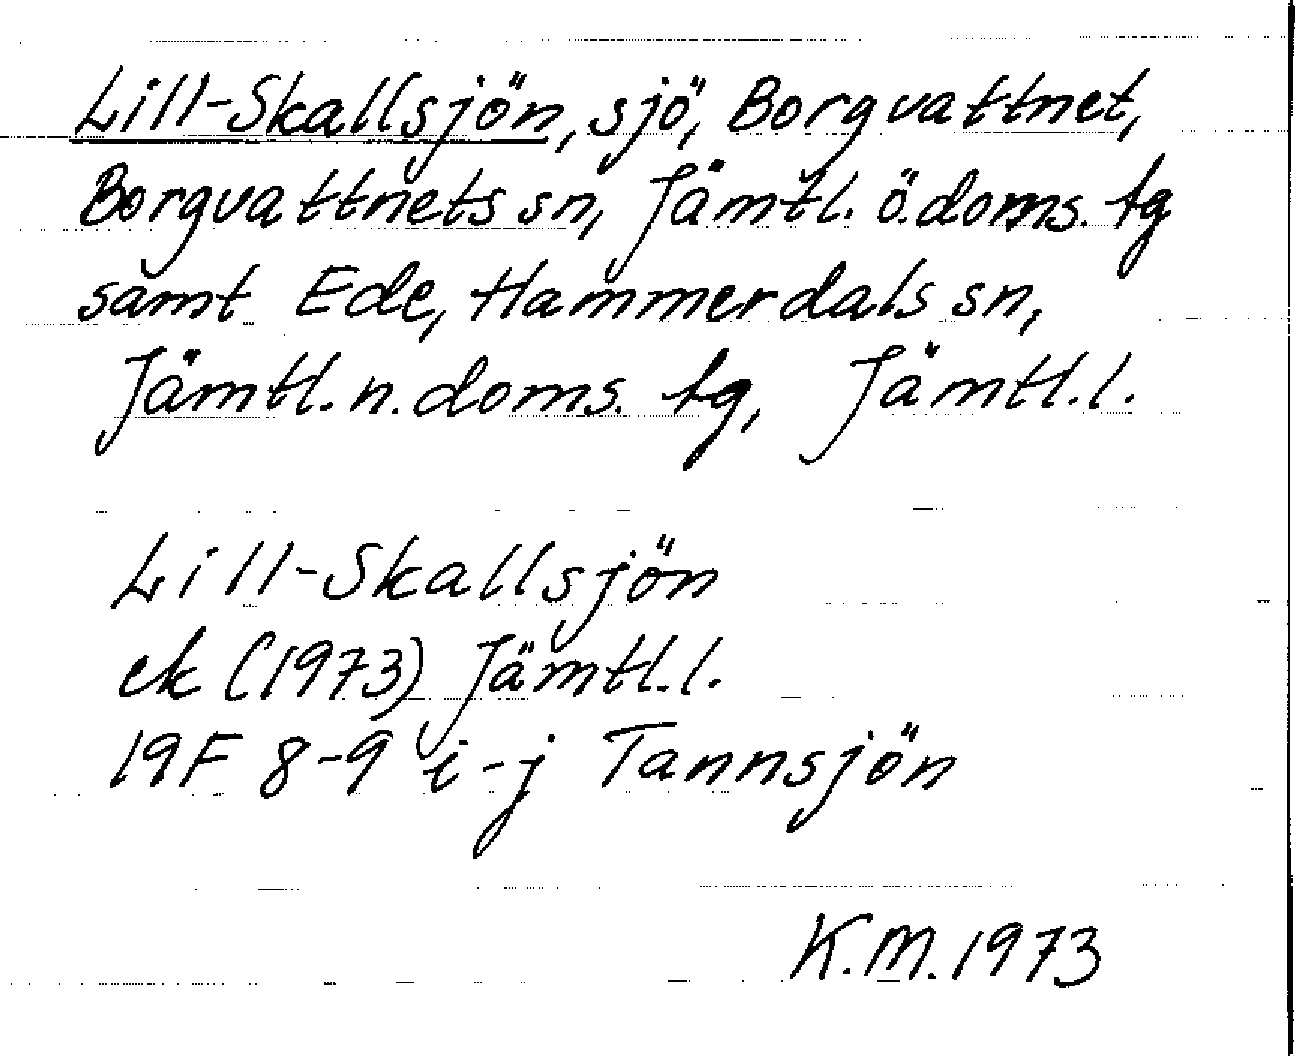 Lill-Skallsjön, sjö, Borgvattnet,
Borgvattnets sn, Jämtl. ö. doms. tg
samt Ede, Hammerdals sn,
Jämtl. n. doms. tg, Jämtl. l.
Lill-Skallsjön
ek (1973) Jämtl. l.
19F 8-9 i-j Tannsjön
K.M. 1973